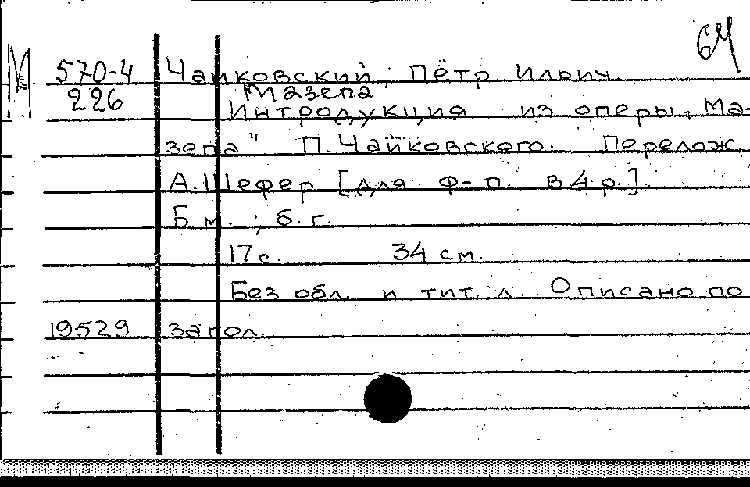 64
М 570-4 Чайковский, Пётр Ильич.
226 Мазепа
Интродукция из оперы „Ма-
зепа" П. Чайковского. Перелож.
А. Шефер [для ф-п. в 4 р.].
Б.м., б.г.
17с. 34 см.
Без обл. и тит. л. Описано по
19529 загол.